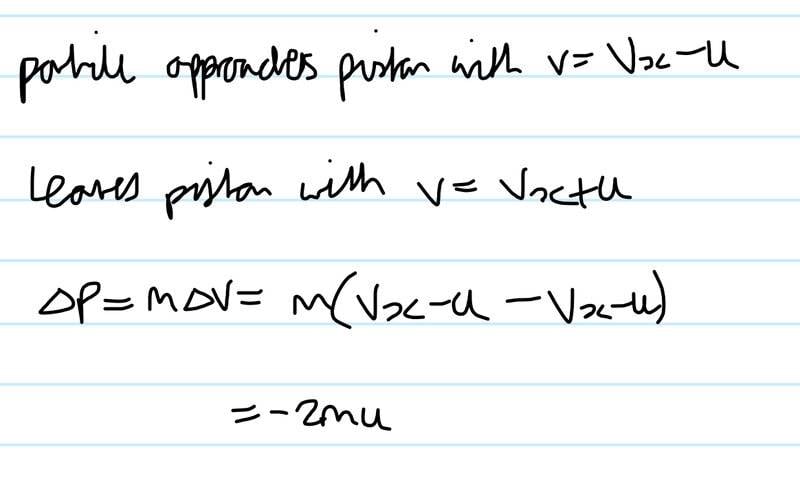 particle approaches piston with v = Vx - u
Leaves piston with v = Vx + u
Δp = mΔV = m(Vx - u - Vx - u)
= -2mu